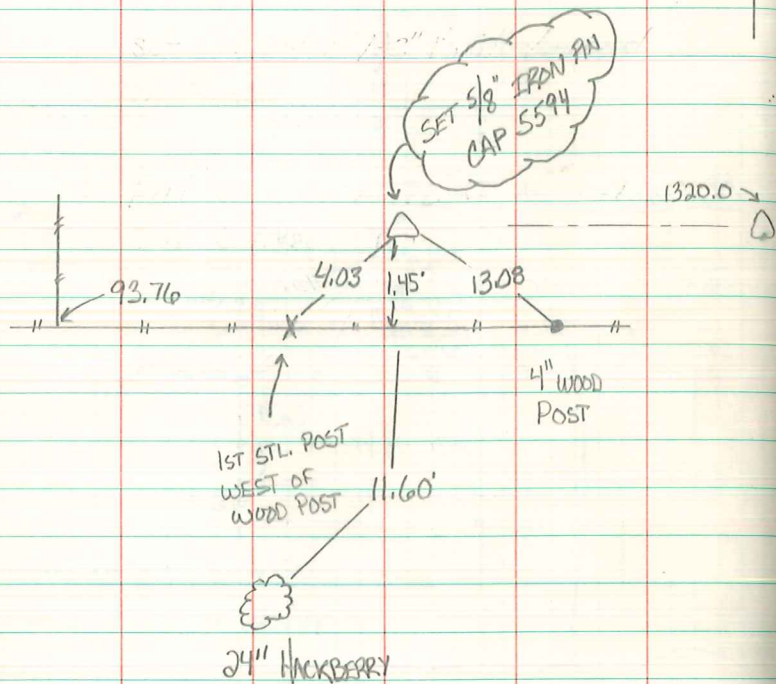 SET 5/8" IRON PIN
CAP 5594
1320.0
4.03
1.45'
13.08
93.76
4" WOOD
POST
1ST STL. POST
WEST OF
WOOD POST
11.60'
24" HACKBERRY